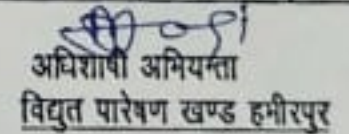 अधिशाषी अभियन्ता
विद्युत पारेषण खण्ड हमीरपुर